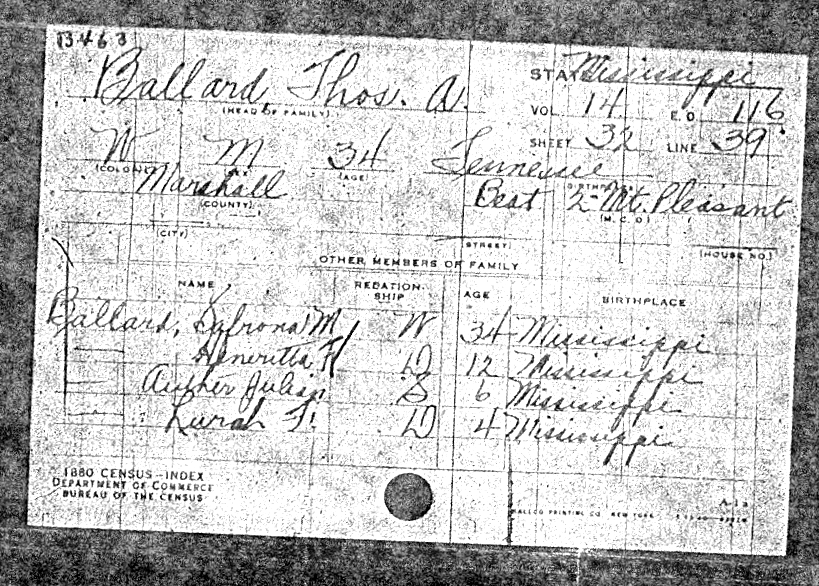 B463
Ballard Thos. A. STATE Mississippi
(HEAD OF FAMILY) VOL. 14 E.D. 116
SHEET 32 LINE 39
W M 34 Tennessee
(COLOR) (AGE)
Marshall Beat 2-Mt. Pleasant
(COUNTY) (M.C.D.)
(CITY) (STREET) (HOUSE NO.)
OTHER MEMBERS OF FAMILY
NAME RELATION-SHIP AGE BIRTHPLACE
Ballard, M W 34 Mississippi
D 12 Mississippi
Auther Julian S 6 Mississippi
Lurah F. D 4 Mississippi
1880 CENSUS-INDEX
DEPARTMENT OF COMMERCE
BUREAU OF THE CENSUS
A-13
PRINTING CO. NEW YORK